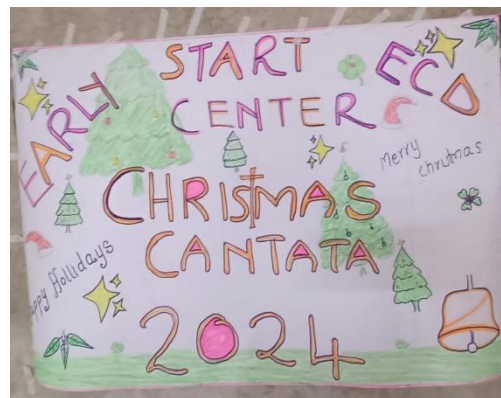 EARLY START ECD
CENTER
Merry
christmas
CHRISTMAS
CANTATA
Happy Hollidays
2024